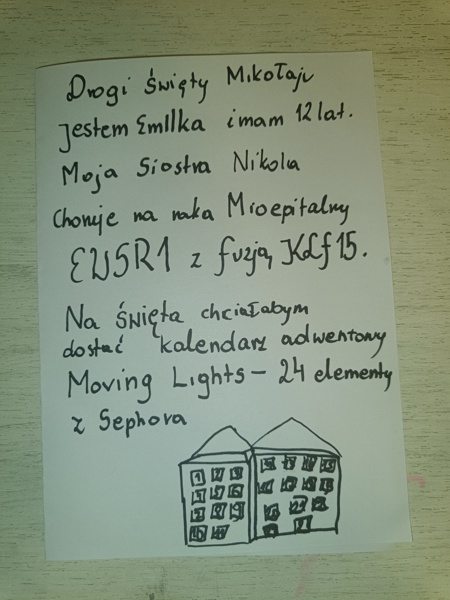 Drogi święty Mikołaju
Jestem Emilka i mam 12 lat.
Moja Siostra Nikola
Choruje na raka Mioepitalny
EWSR1 z fuzją KLf15.
Na święta chciałabym
dostać kalendarz adwentowy
Moving Lights - 24 elementy
z Sephora
1 2 3